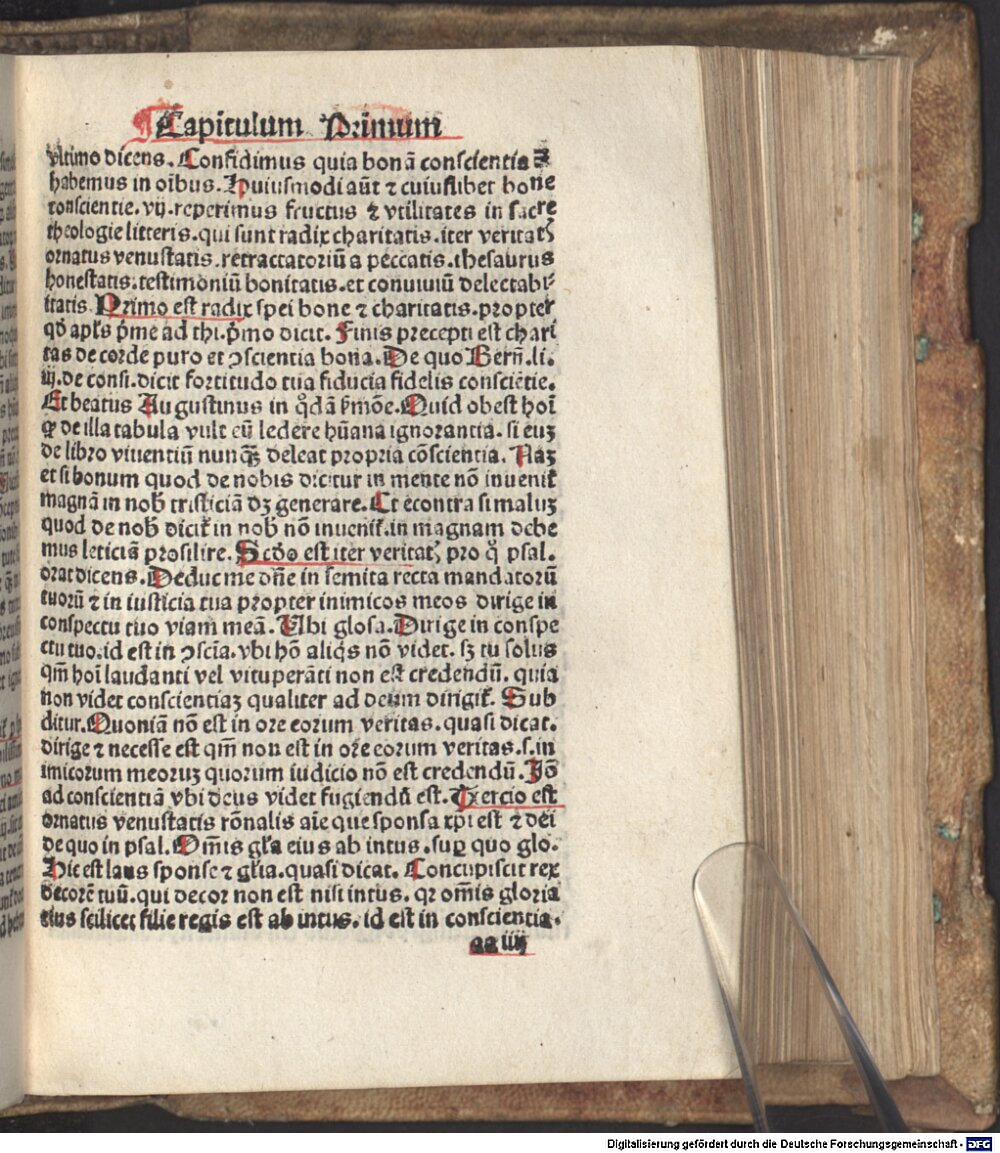 Capitulum Primum
vltimo dicens. Confidimus quia bonā conscientiā
habemus in oībus. Huiusmodi aūt ⁊ cuiuslibet bone
conscientie. vij. reperimus fructus ⁊ vtilitates in sacre
theologie litteris. qui sunt radix charitatis. iter veritatꝭ
ornatus venustatis. retractatoriū a peccatis. thesaurus
honestatis. testimoniū bonitatis. et conuiuiū delectabi
litatis. Primo est radix spei bone ⁊ charitatis. propter
qđ apl's p̄me ad thi. p̄mo dicit. Finis precepti est chari
tas de corde puro et ↄscientia bona. De quo Bern̄. li.
iij. de consi. dicit fortitudo tua fiducia fidelis consciētie.
Et beatus Augustinus in q̊dā s̓mōe. Quid obest hoī
ꝙ de illa tabula vult eū ledere hūana ignorantia. si euꝫ
de libro viuentiū nunqꝫ deleat propria cōscientia. Naꝫ
et si bonum quod de nobis dicitur in mente nō inuenit᷑
magnā in nob̓ tristiciā dꝫ generare. Et econtra si maluꝫ
quod de nob̓ dicit᷑ in nob̓ nō inuenit᷑. in magnam debe
mus leticiā prosilire. Scd̓o est iter veritatꝭ pro q̊ psal.
orat dicens. Deduc me dn̄e in semita recta mandatorū
tuorū ⁊ in iusticia tua propter inimicos meos dirige in
conspectu tuo viam meā. Ubi glosa. Dirige in conspe
ctu tuo. id est in ↄscīa. vbi hō aliqs nō videt. sꝫ tu solus
qm̄ hoī laudanti vel vituperāti non est credendū. quia
non videt conscientiaꝫ qualiter ad deum dirigit᷑. Sub
ditur. Quoniā nō est in ore eorum veritas. quasi dicat.
dirige ⁊ necesse est qm̄ non est in ore eorum veritas. s. in
imicorum meoruꝫ quorum iudicio nō est credendū. Iō
ad conscientiā vbi deus videt fugiendū est. Tercio est
ornatus venustatis rōnalis aīe que sponsa xp̄i est ⁊ dei
de quo in psal. Om̄is gl'a eius ab intus. suꝑ quo glo.
Hic est laus sponse ⁊ gl'ia. quasi dicat. Concupiscit rex
decorē tuū. qui decor non est nisi intus. qr om̄is gloria
eius scilicet filie regis est ab intus. id est in conscientia.
aa iiij
Digitalisierung gefördert durch die Deutsche Forschungsgemeinschaft - DFG